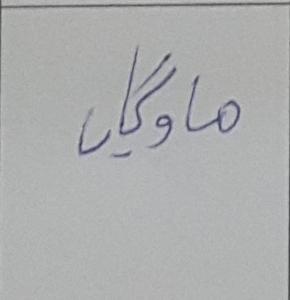 ماوگیاں